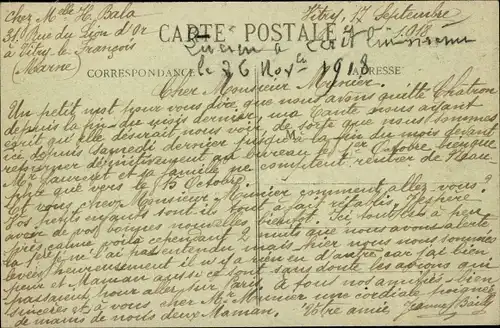 Chez Melle H. Bala
31, Rue du Lion d'Or
à Vitry le François
(Marne)
Vitry, 17 Septembre
1918
CARTE POSTALE
le 26 Nov 1918
CORRESPONDANCE
ADRESSE
Cher Monsieur Munier.
Un petit mot pour vous dire que nous avons quitté Chatron
depuis la fin du mois dernier, ma Tante nous ayant
écrit qu'elle désirait nous voir, de sorte que nous sommes
ici depuis Samedi dernier jusqu'à la fin du mois devant
reprendre définitivement au bureau le 1er Octobre, bien que
Mr et sa famille ne comptent rentrer de
que vers le 15 Octobre.
Et vous cher Monsieur Munier comment allez-vous?
Vos petits enfants sont-ils tout à fait rétablis. J'espère
avoir de vos bonnes nouvelles bientôt. Ici tout est à peu
près calme voilà cependant 2 nuits que nous entendons
la je ne l'ai pas entendu mais hier nous nous sommes
levées heureusement il n'y a rien eu d'autre, car j'ai bien
peur et Maman aussi ce sont sans doute les avions qui
passaient pour aller sur Paris. à tous nos amitiés bien
sincères et à vous cher Mr Munier une cordiale poignée
de mains de nous deux Maman. Votre amie
Jeanne